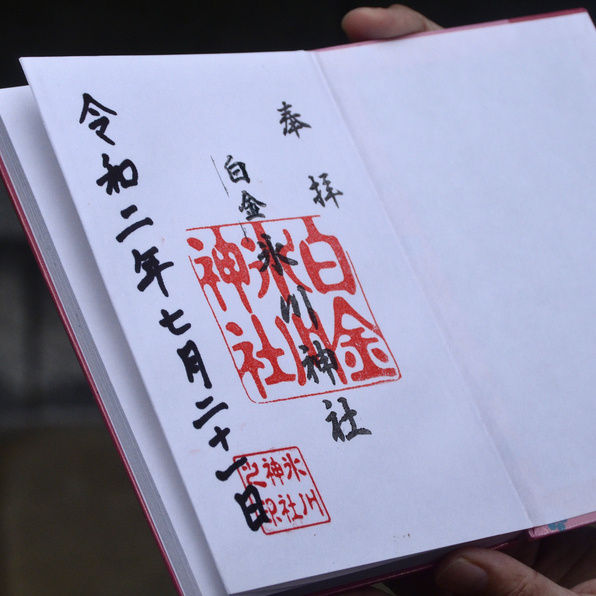 奉拝
白金氷川神社
白金氷川神社
令和二年七月二十一日
氷川神社之印